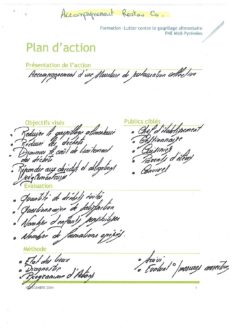 Accompagnement Restau Co.
Formation - Lutter contre le gaspillage alimentaire
FNE Midi-Pyrénées
Plan d'action
Présentation de l'action
Accompagnement d'une structure de restauration collective
Objectifs visés
Publics ciblés
• Réduire le gaspillage alimentaire
• Réduire les déchets
• Diminuer le coût de traitement des déchets
• Répondre aux objectifs et obligations réglementaires
• Chef d'établissement
• Gestionnaire
• Cuisiniers
• Parents d'élèves
• Convives
Evaluation
• Quantité de déchets évités
• Questionnaire de satisfaction
• Nombre d'enfants sensibilisés
• Nombre de formations
Méthode
• Etat des lieux
• Diagnostic
• Programme d'Actions
• Suivi
1